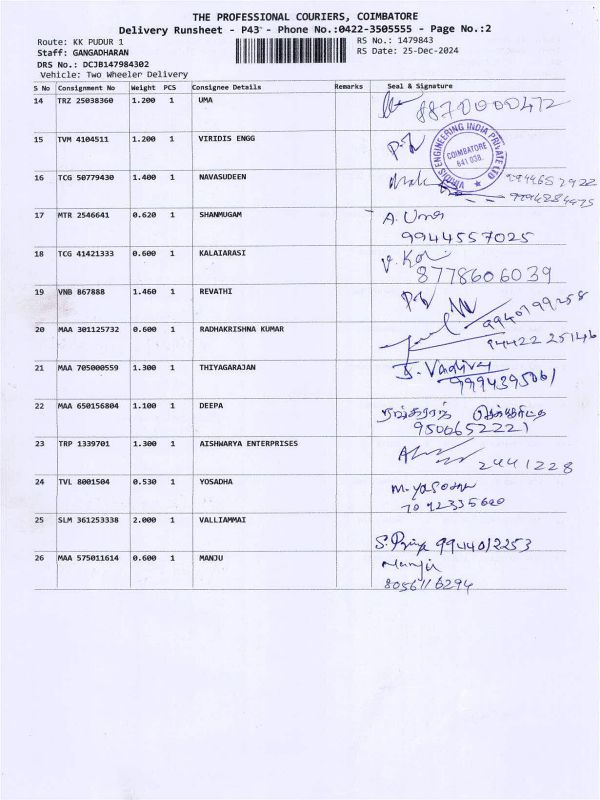 THE PROFESSIONAL COURIERS, COIMBATORE
Delivery Runsheet - P43 - Phone No.:0422-3505555 - Page No.:2
Route: KK PUDUR 1 RS No.: 1479843
Staff: GANGADHARAN RS Date: 25-Dec-2024
DRS No.: DCJB147984302
Vehicle: Two Wheeler Delivery
S No Consignment No Weight PCS Consignee Details Remarks Seal & Signature
14 TRZ 25038360 1.200 1 UMA 8870000472
15 TVM 4104511 1.200 1 VIRIDIS ENGG
VIRIDIS ENGINEERING INDIA PRIVATE LTD
COIMBATORE
641 038.
16 TCG 50779430 1.400 1 NAVASUDEEN
17 MTR 2546641 0.620 1 SHANMUGAM A. Uma
9944557025
18 TCG 41421333 0.600 1 KALAIARASI
8778606039
19 VNB 867888 1.460 1 REVATHI
9940199258
20 MAA 301125732 0.600 1 RADHAKRISHNA KUMAR
94422 25146
21 MAA 705000559 1.300 1 THIYAGARAJAN
9994395061
22 MAA 650156804 1.100 1 DEEPA
9500652221
23 TRP 1339701 1.300 1 AISHWARYA ENTERPRISES
2441228
24 TVL 8001504 0.530 1 YOSADHA M. Yasodha
25 SLM 361253338 2.000 1 VALLIAMMAI
S. Priya 9944012253
26 MAA 575011614 0.600 1 MANJU Manju
8056116294